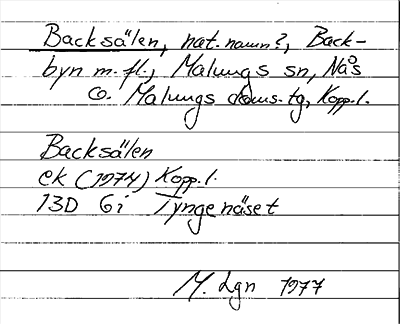 Backsälen, nat.namn?, Back-
byn m.fl., Malungs sn, Nås
o. Malungs doms.tg, Kopp.l.
Backsälen
ek (1974) Kopp.l.
13D 6i Tyngenäset
M. Lgn 1977